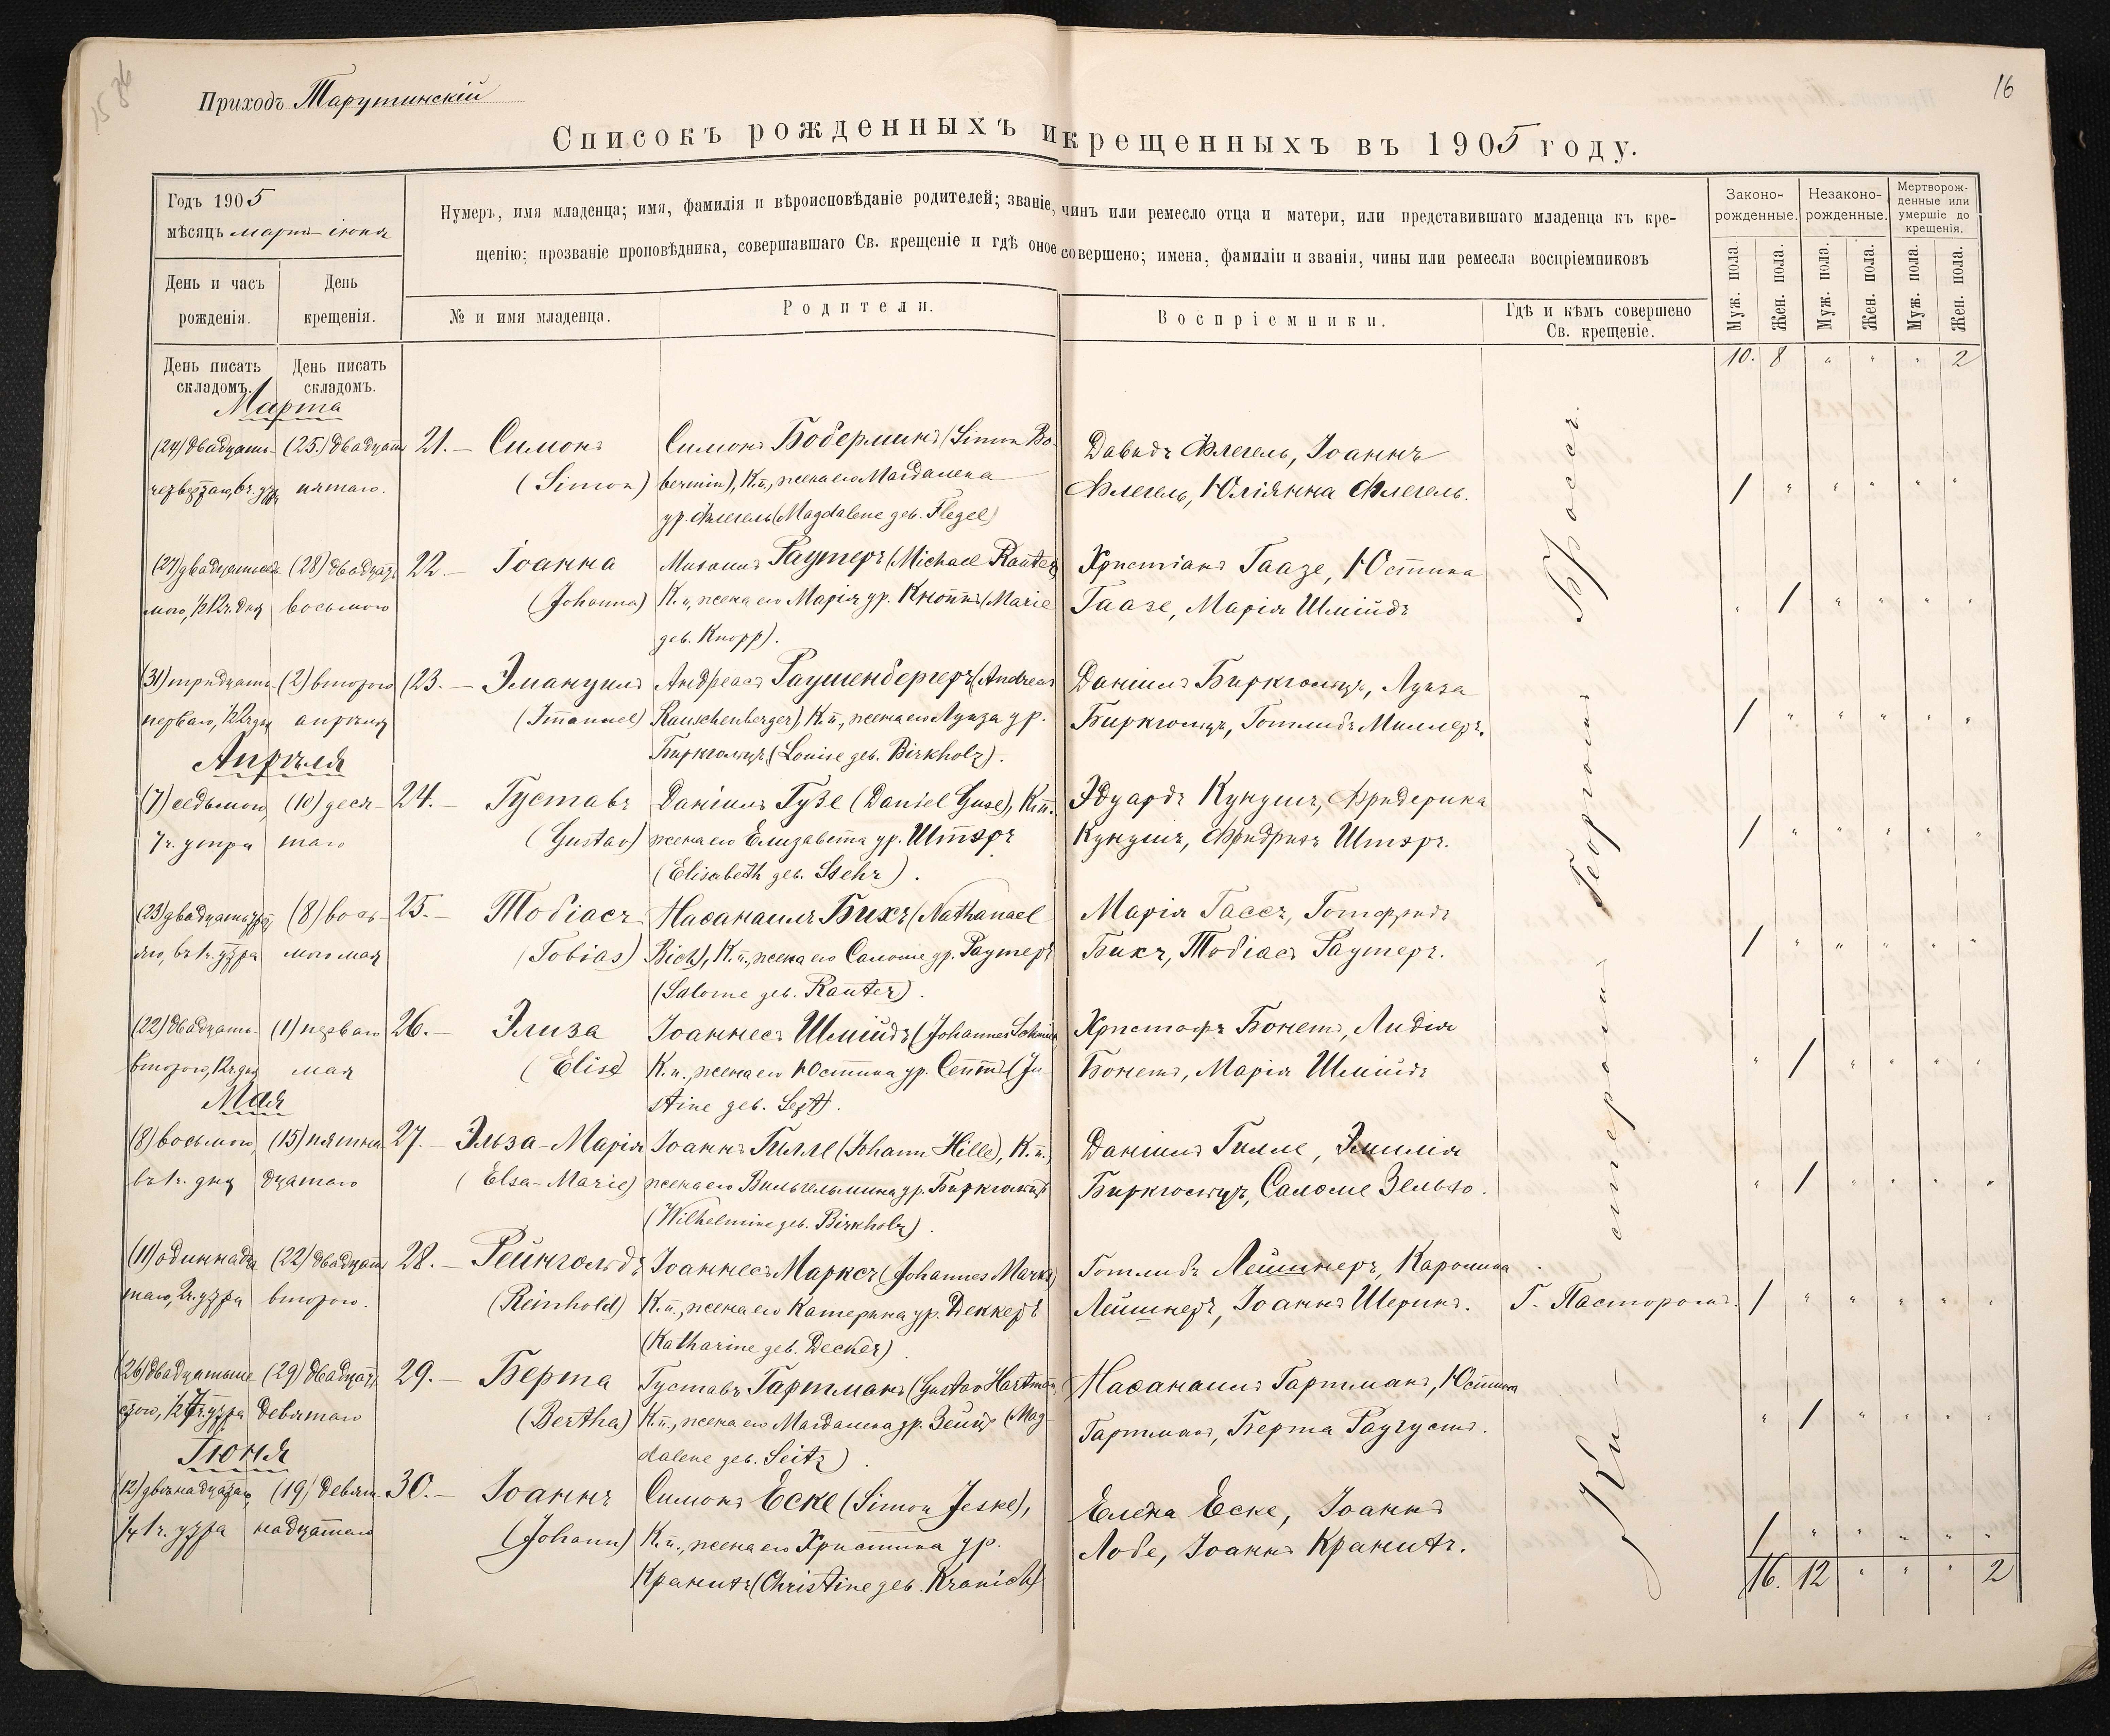 16
Приходъ Тарутинскій
Списокъ рожденныхъ и крещенныхъ въ 1905 году.
Годъ 1905
мѣсяцъ мартъ - іюня
Нумеръ, имя младенца; имя, фамилія и вѣроисповѣданіе родителей; званіе, чинъ или ремесло отца и матери, или представившаго младенца къ кре-
щенію; прозваніе проповѣдника, совершавшаго Св. крещеніе и гдѣ оное совершено; имена, фамиліи и званія, чины или ремесла воспріемниковъ
Законо-
рожденные.
Незаконо-
рожденные.
Мертворож-
денные или
умершіе до
крещенія.
День и часъ
рожденія.
День
крещенія.
№ и имя младенца.
Родители.
Воспріемники.
Гдѣ и кѣмъ совершено
Св. крещеніе.
Муж. пола.
Жен. пола.
Муж. пола.
Жен. пола.
Муж. пола.
Жен. пола.
День писать
складомъ.
День писать
складомъ.
10. 8 " " " 2
Марта
(24) двадцать- (25.) двадцать 21. — Симонъ Симонъ Бобермин (Simon Bo- Давидъ Флегель, Іоаннъ
пятаго. (Simon) bermin), К.п., жена его Магдалена Флегель, Юліянна Флегель. 1 " " " " "
ур. Флегель (Magdalene geb. Flegel)
(27) (28) двадцать 22. — Іоанна Михаилъ Раутеръ (Michael Rauter) Христіанъ Гаазе, Юстина
мого, ½12ч. дня восьмого (Johanna) К.п., жена его Марія ур. Кноппъ (Marie Гаазе, Марія Шмидъ " 1 " " " "
geb. Knopp).
(31) тридцать (2) второго 23. — Эмануилъ Андреасъ Раушенбергеръ (Andreas Даніилъ Биркгольцъ, Луиза
перваго, апрѣля (Immanuel) Rauschenberger), К.п., жена его Луиза ур. Биркгольцъ, Готлибъ Миллеръ. 1 " " " " "
Биркгольцъ (Louise geb. Birkholz).
Апрѣля
(7) седьмого, (10) деся- 24. — Густавъ Даніилъ Гузе (Daniel Guse), К.п. Эдуардъ Кунушъ, Фридерика
7ч. утра таго (Gustav) жена его Елизавета ур. Штэръ Кунушъ, Фридрихъ Штэръ. 1 " " " " "
(Elisabeth geb. Stehr).
(23) (8) вось- 25. — Тобіасъ Наѳанаилъ Бихъ (Nathanael Марія Гассъ, Готфридъ
въ 1ч. утра мого мая (Tobias) Bich), К.п., жена его Саломе ур. Раутеръ Бихъ, Тобіасъ Раутеръ. 1 " " " " "
(Salome geb. Rauter).
(22) двадцать- (1) перваго 26. — Элиза Іоаннесъ Шмидъ (Johannes Schmid Христофъ Бонетъ, Лидія
второго, 12ч. дня мая (Elise) К.п., жена его Юстина ур. Септъ (Ju- Бонетъ, Марія Шмидъ " 1 " " " "
stine geb. Sept).
Мая
(8) восьмого, (15) пятна- 27. — Эльза-Марія Іоаннъ Гилле (Johann Hille), К.п., Даніилъ Гилле, Эмилія
въ 1ч. дня дцатаго (Elsa-Marie) жена его Вильгельмина ур. Биркгольцъ Биркгольцъ, Саломе Зельхо. " 1 " " " "
(Wilhelmine geb. Birkholz).
(11) одиннадца (22) двадцать 28. — Рейнгольдъ Іоаннесъ Марксъ (Johannes Marks) Готлибъ Лейшнеръ, Каролина
таго, 2ч. утра второго. (Reinhold) К.п., жена его Катерина ур. Деккеръ Лейшнеръ, Іоаннъ Шеринъ. Г. Пасторомъ. 1 " " " " "
(Katharine geb. Decker).
(26) (29) двадцать 29. — Берта Густавъ Гартманъ (Gustav Hartmann) Наѳанаилъ Гартманъ, Юстина
девятаго (Bertha) К.п., жена его Магдалена ур. Зейцъ (Mag- Гартманъ, Берта Раугустъ. " 1 " " " "
dalene geb. Seitz).
Іюня
(12) двѣнадцатаго (19) девят- 30. — Іоаннъ Симонъ Еске (Simon Jeske), Елена Еске, Іоаннъ
утра надцатаго (Johann) К.п., жена его Христина ур. Лобе, Іоаннъ Кранихъ. 1 " " " " "
Кранихъ (Christine geb. Kranich) 16. 12 " " " 2